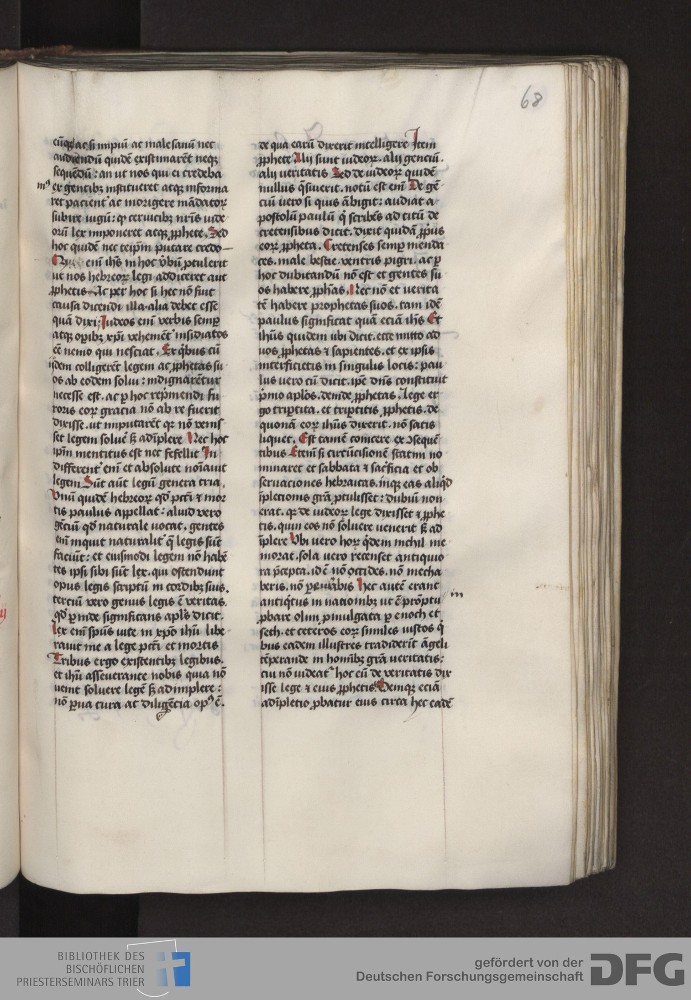 68
cūq; ac si impiū ac malesanū nec
audiendū quidē existimarēt neq;
sequēdū: an ut nos qui ei credeba
mᵃ er gentibꝫ institueret atq; informa
ret pacient' ac morigere mādatoꝝ
subire iugū: q̄ ceruicibꝫ nr̄is iude
oꝝū lex imponeret atq; ꝓphete. Sed
hoc quidē nec teip̄m putare credo
enī ihs in hoc v̄bū ꝓtulerit
ut nos hebreoꝝ legi addiceret aut
ꝓphetis. Ac per hoc si hec nō fuit
causa dicendi illa. alia debet esse
quā dixi. Iudeos enī verbis semꝑ
atq; opibꝫ xp̄i vehemēt' insidiatos
eē nemo qui nesciat. Ex q̄bus cū
isdem colligerēt legem ac ꝓphetas su
os ab eodem solui: indignarētur
necesse est. ac ꝑ hoc rep̄mendi fu
roris eoꝝ gracia nō ab re fuerit
dixisse. ut imputarēt qꝛ nō venis
set legem soluē s; adīplere Nec hoc
ip̄m mentitus est nec fefellit In
different' enī et absolute nōauit
legem. Sūt aūt legū genera tria.
Vnū quidē hebreoꝝ qd̄ pctī ⁊ mor
tis paulus appellat: aliud vero
gēciū qd̄ naturale uocat. gentes
enī inquit naturalit' q̄ legis sūt
faciūt: et eiusmodi legem nō habē
tes ipsi sibi sūt lex. qui ostendunt
opus legis scriptū in cordibꝫ suis.
terciū vero genus legis ē veritas.
qd̄ ꝑinde significans apl's dicit.
Lex enī spūs uite in xp̄o ihū libe
rauit me a lege pctī et mortis
Tribus ergo existentibꝫ legibus.
et ihū asseuerante nobis qua nō
uenit soluere legē s; adimplere:
nō ꝑua cura ac diligēcia opꝰ ē.
de qua earū dixerit intelligere Item
ꝓphete Alij sunt iudeoꝝ. alij gentiū.
alij ueritatis Sed de iudeoꝝ quidē
nullus q̄siuerit. notū est enī De gē
ciū vero si quis ābigit: audiat a
postolū paulū q̄ scribēs ad titū de
cretensibus dicit. dixit quidā ꝓpius
eoꝝ ꝓpheta. Cretenses semꝑ menda
ces. male bestie. ventris pigri. ac ꝑ
hoc dubitandū nō est et gentes su
os habere ꝓphās. Nec nō et uerita
tē habere prophetas suos. tam idē
paulus significat quā eciā ihs Et
ihūs quidem ubi dicit. ecce mitto ad
uos ꝓphetas ⁊ sapientes. et ex ipsis
interficietis in singulis locis: pau
lus vero cū dicit. ip̄e dn̄s constituit
p̄mo aplos. deinde ꝓphetas. Lege er
go tripertita. et triptitis ꝓphetis. de
quonā eoꝝ ihūs dixerit. nō satis
liquet. Est tamē conicere ex ꝯseque
tibus Etenī si circūcisionē statim no
minaret et sabbata ⁊ sac'ficia et ob
seruaciones hebraicas. inq; eas aliq̄d
īpletionis grā ꝓtulisset: dubiū non
erat. qꝛ de iudeoꝝ lege dixisset ⁊ ꝓphe
tis. quin eos nō soluere uenerit s; ad
īplere Vbi uero hoꝝ q̄dem nichil me
morat. sola uero recenset antiquio
ra p̄cepta. id ē nō occides. nō mecha
beris. nō piurabis Hec autē erant
antiq̄tus in nationibꝫ ut ē prōptu
ꝓbare olim ꝓmulgata ꝑ enoch et
seth. et ceteros eoꝝ similes iustos q̄
bus eadem illustres tradiderūt āgeli
tēperande in hominibꝫ grā ueritatis:
cui nō uideat' hoc eū de veritatis dix
isse lege ⁊ eius ꝓphetis. Demqe eciā
adīpletio ꝓbatur eius circa hec eadē
BIBLIOTHEK DES
BISCHÖFLICHEN
PRIESTERSEMINARS TRIER
gefördert von der
Deutschen Forschungsgemeinschaft
DFG